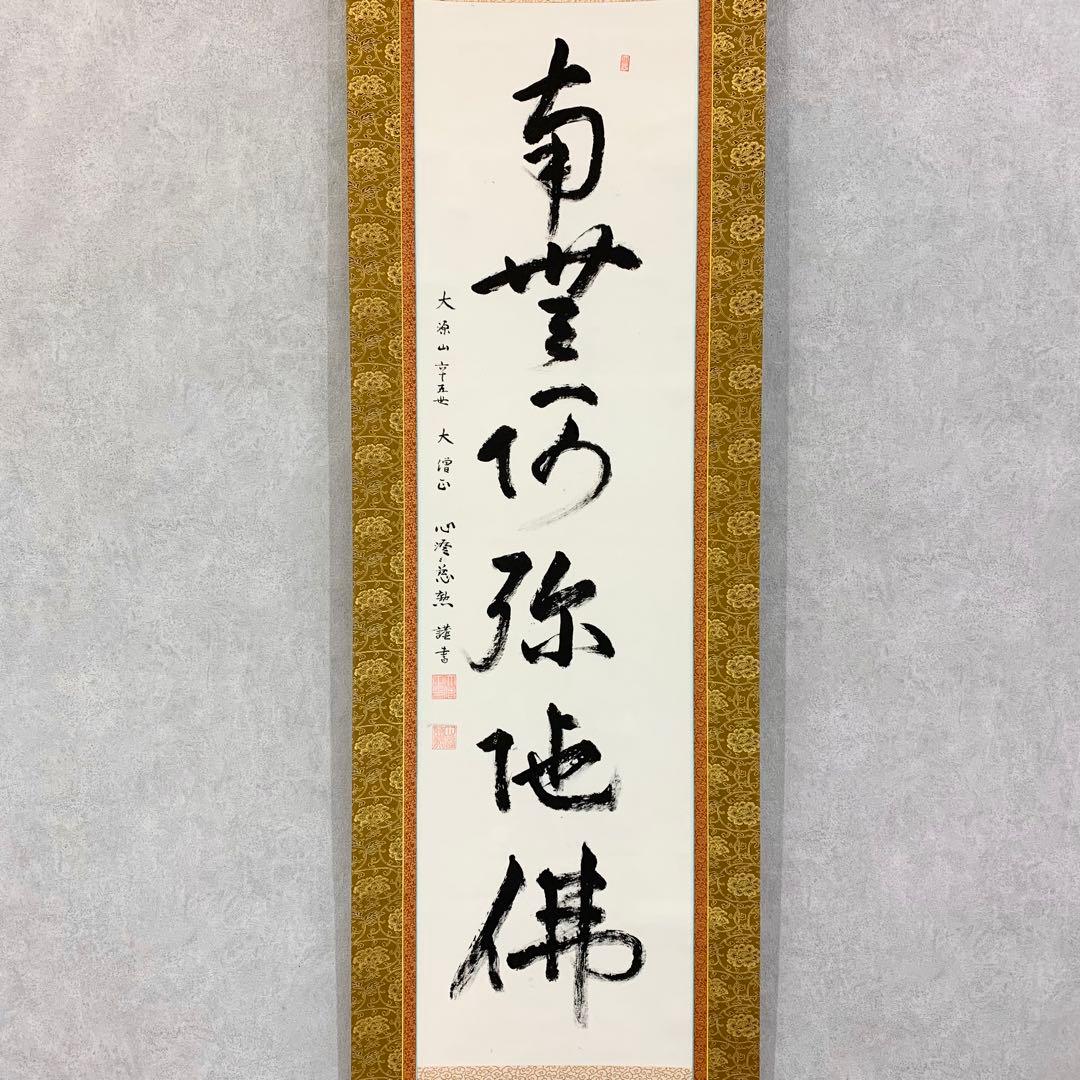 南無阿弥陀佛
大源山 六十五世 大僧正 心澄慈勲 謹書